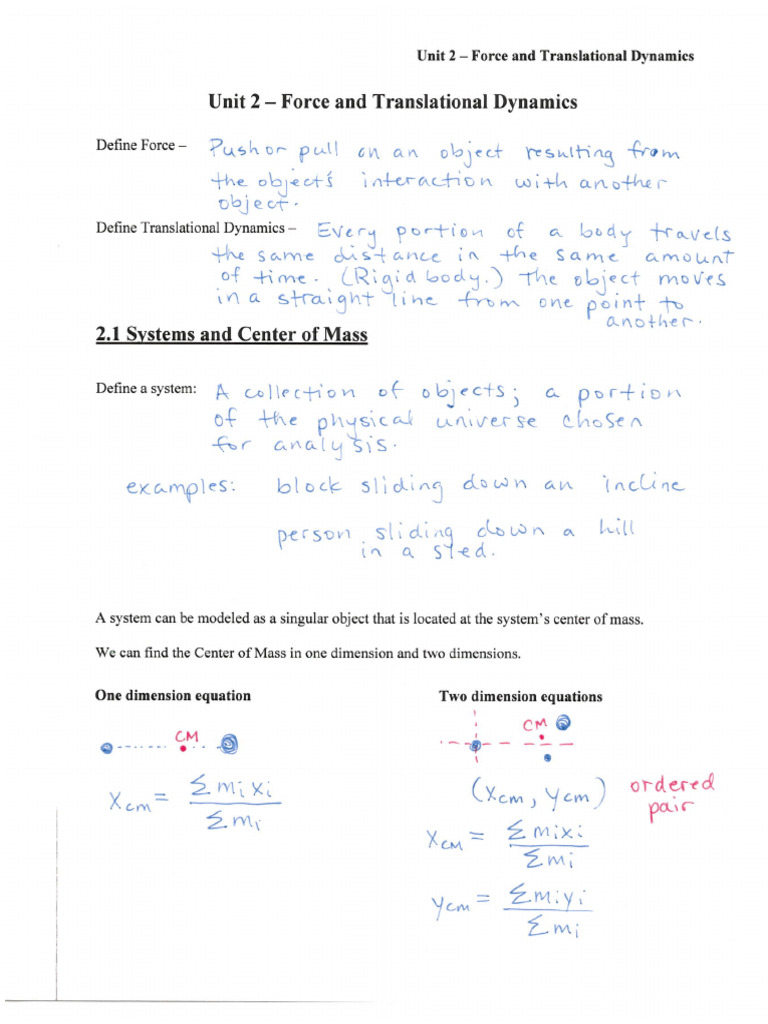 Unit 2 – Force and Translational Dynamics
Unit 2 – Force and Translational Dynamics
Define Force – Push or pull on an object resulting from
the object's interaction with another
object.
Define Translational Dynamics – Every portion of a body travels
the same distance in the same amount
of time. (Rigid body.) The object moves
in a straight line from one point to
another.
2.1 Systems and Center of Mass
Define a system: A collection of objects; a portion
of the physical universe chosen
for analysis.
examples: block sliding down an incline
person sliding down a hill
in a sled.
A system can be modeled as a singular object that is located at the system's center of mass.
We can find the Center of Mass in one dimension and two dimensions.
One dimension equation
Two dimension equations
CM
CM
Xcm = Σmixi / Σmi
(Xcm, Ycm) ordered
pair
XCM = Σmixi / Σmi
ycm = Σmiyi / Σmi